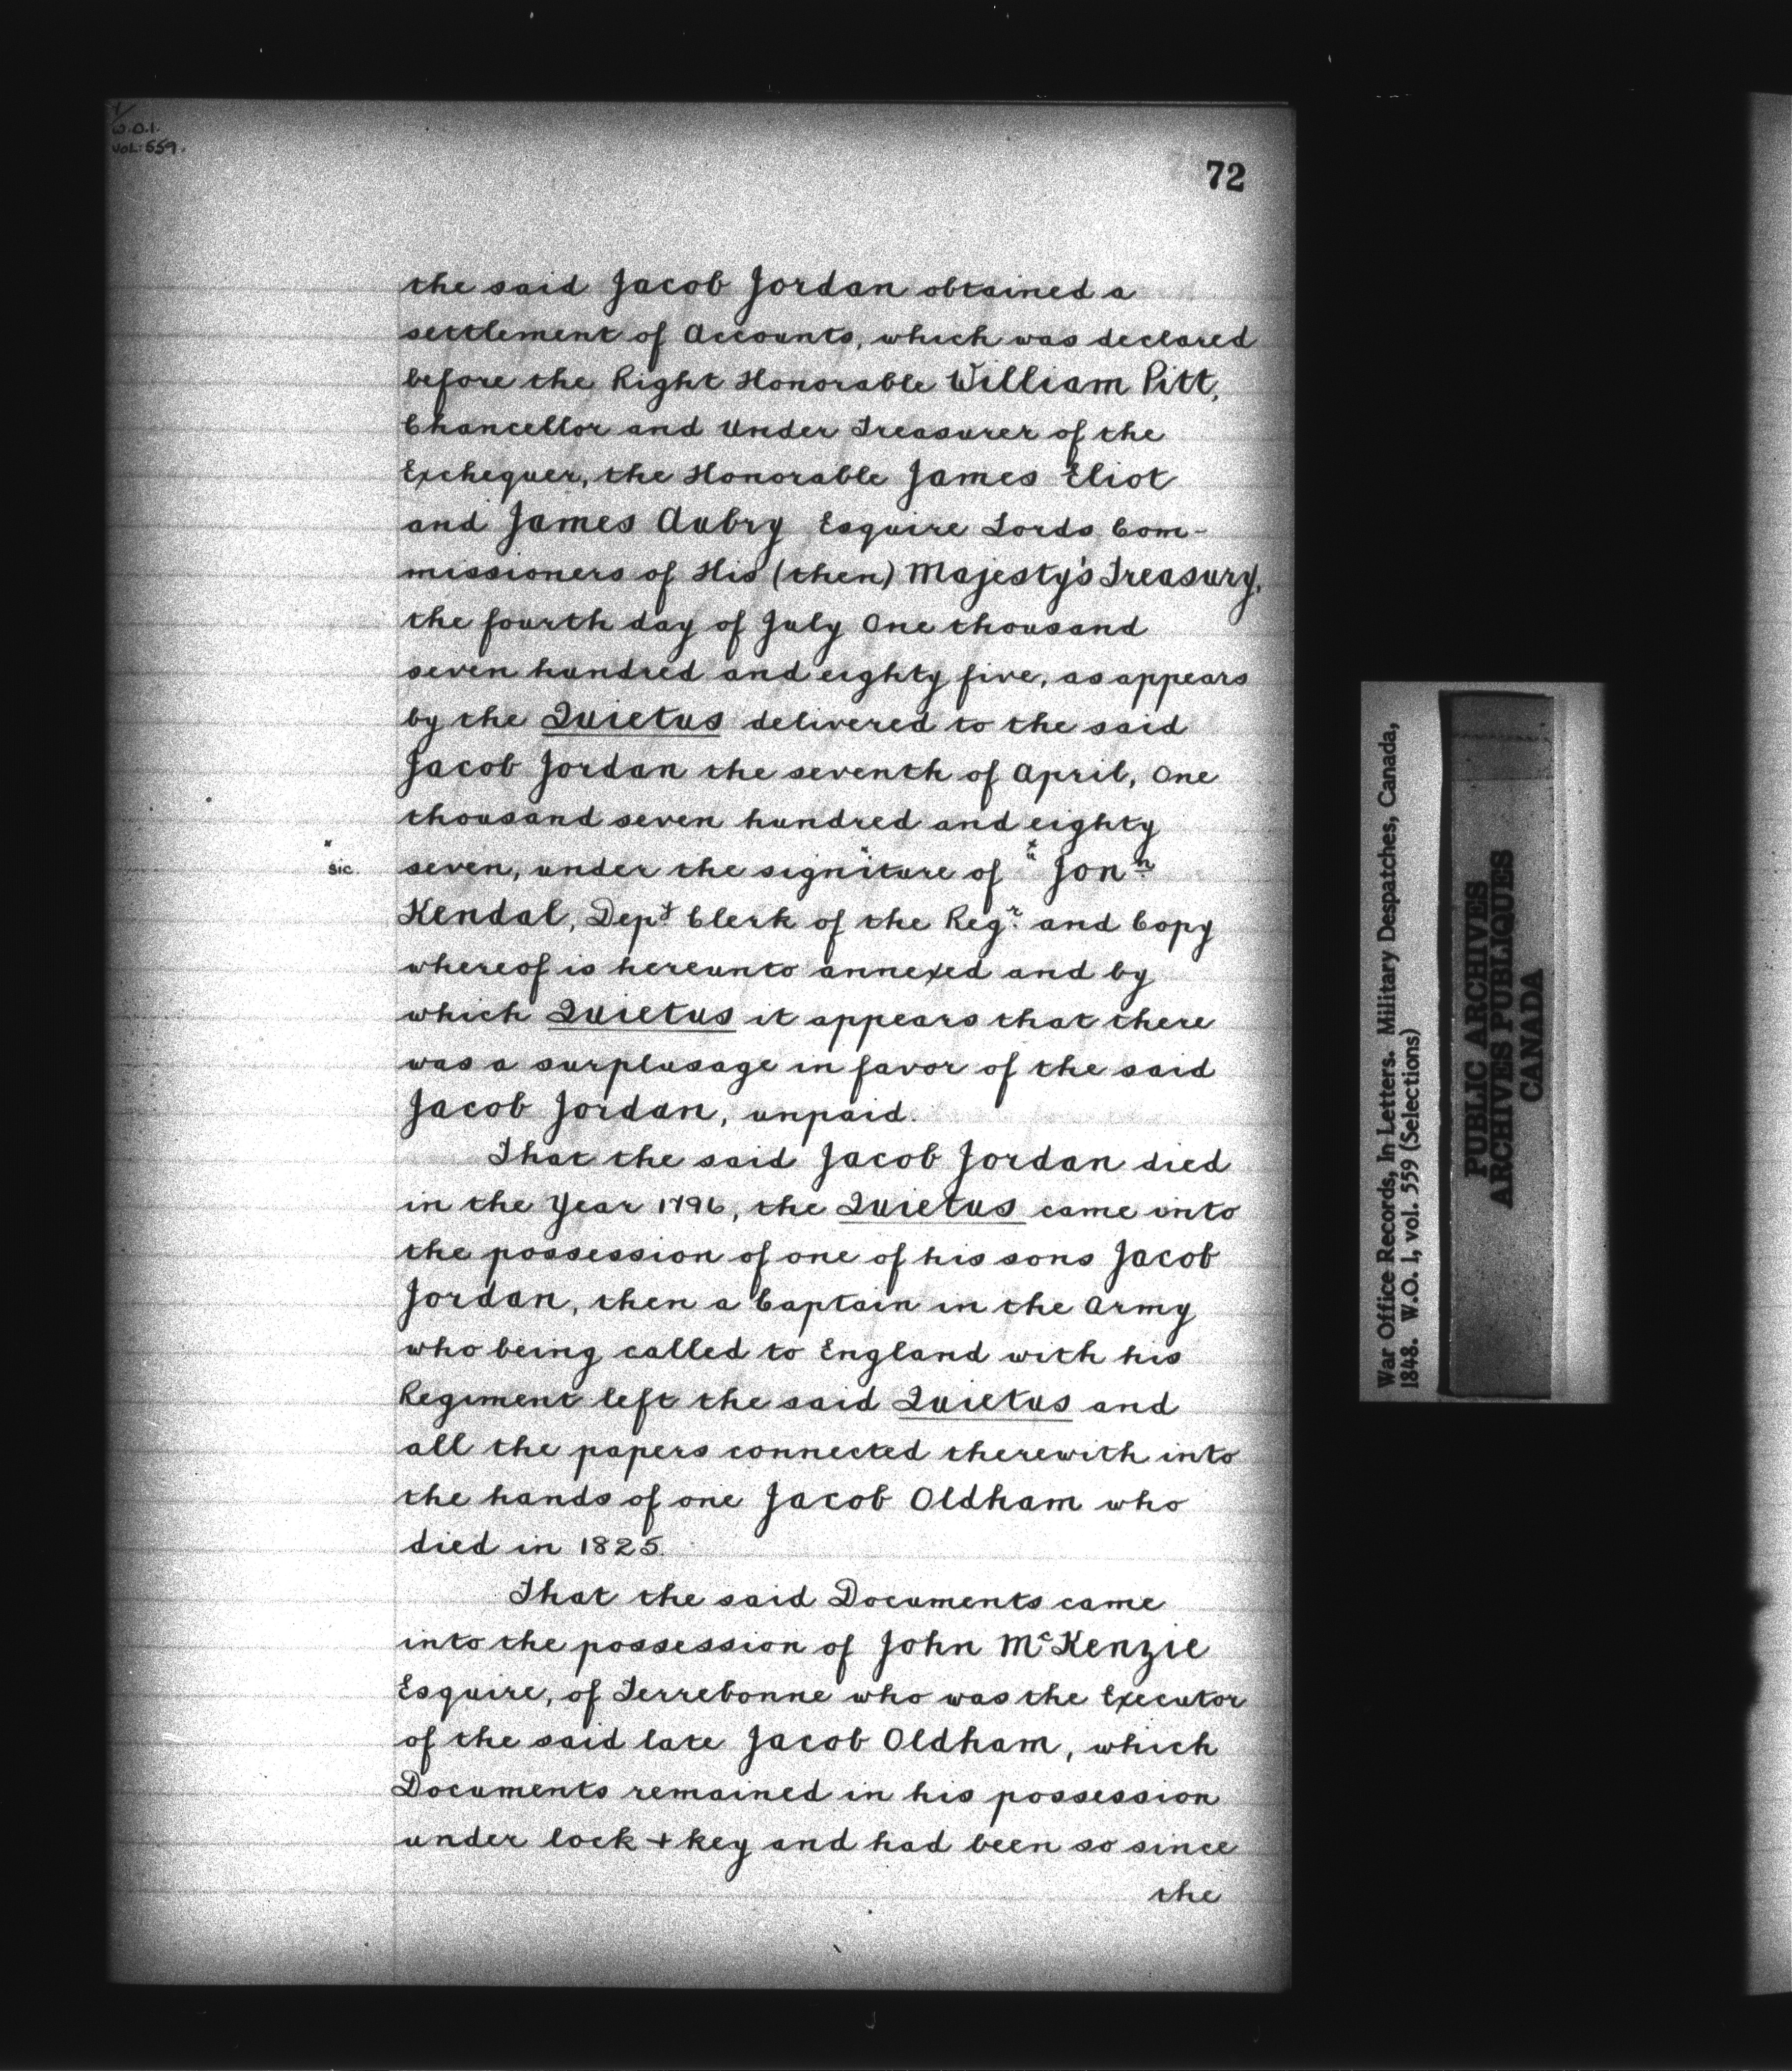 1/
W.O.1.
VOL: 559.
72
the said Jacob Jordan obtained a
settlement of Accounts, which was declared
before the Right Honorable William Pitt,
Chancellor and Under Treasurer of the
Exchequer, the Honorable James Eliot
and James Aubry Esquire Lords Com-
missioners of His (then) Majesty's Treasury,
the fourth day of July One thousand
seven hundred and eighty five, as appears
by the Quietus delivered to the said
Jacob Jordan the seventh of April, One
thousand seven hundred and eighty
x
sic.
seven, under the signiture of "Jonn
Kendal, Dept Clerk of the Regr. and Copy
whereof is hereunto annexed and by
which Quietus it appears that there
was a surplusage in favor of the said
Jacob Jordan, unpaid.
That the said Jacob Jordan died
in the Year 1796, the Quietus came into
the possession of one of his sons Jacob
Jordan, then a Captain in the Army
who being called to England with his
Regiment left the said Quietus and
all the papers connected therewith into
the hands of one Jacob Oldham who
died in 1825.
That the said Documents came
into the possession of John McKenzie
Esquire, of Terrebonne who was the Executor
of the said late Jacob Oldham, which
Documents remained in his possession
under lock + key and had been so since
the
War Office Records, In Letters. Military Despatches, Canada,
1848. W.O. 1, vol. 559 (Selections)
PUBLIC ARCHIVES
ARCHIVES PUBLIQUES
CANADA